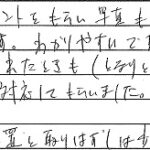 ントをもらい写真も
す。わかりやすいです
れたときも(となりと
対応してもらいました。
置を取りはずしはま